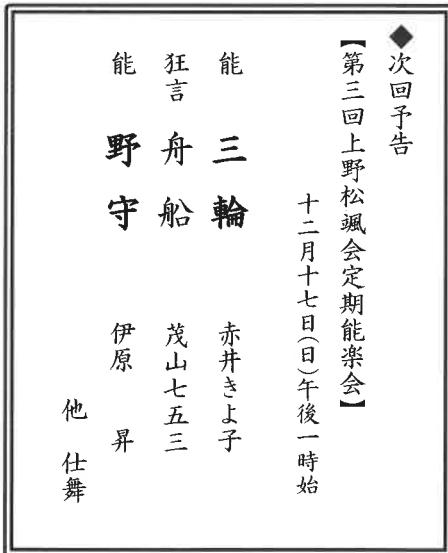 ◆次回予告
【第三回上野松颯会定期能楽会】
十二月十七日(日)午後一時始
能 三輪 赤井きよ子
狂言 舟船 茂山七五三
能 野守 伊原 昇
他 仕舞